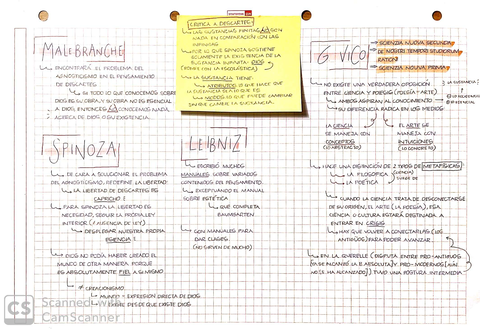 MALEBRANCHE
ENCONTRARÁ EL PROBLEMA DEL
AGNOSTICISMO EN EL PENSAMIENTO
DE DESCARTES:
TODO LO QUE CONOCEMOS SOBRE
DIOS ES SU OBRA Y SU OBRA NO ES ESENCIAL
A DIOS, ENTONCES NO CONOCEMOS NADA
ACERCA DE DIOS O SU EXISTENCIA.
CRITICA A DESCARTES:
LAS SUSTANCIAS FINITAS SON
NADA EN COMPARACIÓN CON LAS
INFINITAS
POR LO QUE
LA EXISTENCIA DE UNA
SUSTANCIA INFINITA: DIOS
LA SUSTANCIA TIENE:
ATRIBUTOS: LO QUE HACE QUE
LA SUSTANCIA SEA LO QUE ES
MODOS: LO QUE PUEDE CAMBIAR
SIN QUE CAMBIE LA SUSTANCIA.
G. VICO
SCIENZA NUOVA SECONDA
DE NOSTRI TEMPORIS STUDIORUM
RATIONI
SCIENZA NUOVA PRIMA
NO EXISTE UNA VERDADERA OPOSICIÓN
ENTRE CIENCIA Y POESÍA (POESÍA Y ARTE)
AMBOS ASPIRAN AL CONOCIMIENTO
SU DIFERENCIA RADICA EN LOS MEDIOS
LA CIENCIA
SE MANEJA CON
CONCEPTOS
(LO ABSTRACTO)
EL ARTE SE
MANEJA CON
INTUICIONES
(LO CONCRETO)
HACE UNA DISTINCIÓN DE 2 TIPOS DE METAFÍSICAS:
LA FILOSÓFICA (CIENCIA)
LA POÉTICA
CUANDO LA CIENCIA TRATA DE DESCONECTARSE
DE SU ORIGEN, EL ARTE (LA POESÍA), ESA
CIENCIA O CULTURA ESTARÁ DESTINADA A
ENTRAR EN CRISIS
HAY QUE VOLVER A CONECTARLAS (LOS
ANTIGUOS) PARA PODER AVANZAR
EN LA QUERELLE (DISPUTA ENTRE PRO-ANTIGUOS
Y PRO-MODERNOS [AÚN
NO SE HA ALCANZADO]) TUVO UNA POSTURA INTERMEDIA
SPINOZA
DE CARA A SOLUCIONAR EL PROBLEMA
DEL AGNOSTICISMO, REDEFINE LA LIBERTAD
LA LIBERTAD DE DESCARTES ES
CAPRICHO
PARA SPINOZA LA LIBERTAD ES
NECESIDAD, SEGUIR LA PROPIA LEY
INTERIOR (AUSENCIA DE LEY)
DESPLEGAR NUESTRA PROPIA
ESENCIA
DIOS NO PODÍA HABER CREADO EL
MUNDO DE OTRA MANERA PORQUE
ES ABSOLUTAMENTE FIEL A SÍ MISMO
≠ CREACIONISMO
MUNDO = EXPRESIÓN DIRECTA DE DIOS
EXISTE DESDE QUE EXISTE DIOS
LEIBNIZ
ESCRIBIÓ MUCHOS
MANUALES SOBRE VARIADOS
CONTENIDOS DEL PENSAMIENTO
EXCEPTUANDO EL MANUAL
SOBRE ESTÉTICA
QUE COMPLETA
BAUMGARTEN
SON MANUALES PARA
DAR CLASES
(NO SIRVEN DE MUCHO)
CS Scanned with
CamScanner